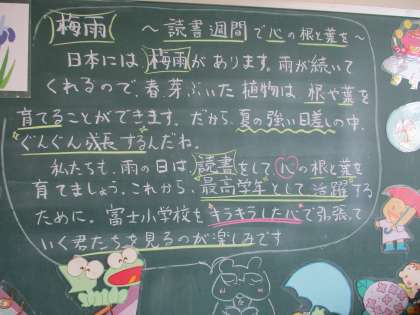 梅雨 ～読書週間で心の根と葉を～
日本には梅雨があります。雨が続いて
くれるので、春、芽ぶいた植物は根や葉を
育てることができます。だから、夏の強い日差しの中、
ぐんぐん成長するんだね。
私たちも、雨の日は、読書をして心の根と葉を
育てましょう。これから、最高学年として活躍する
ために。富士小学校を"キラキラした心"で引張って
いく君たちを見るのが楽しみです